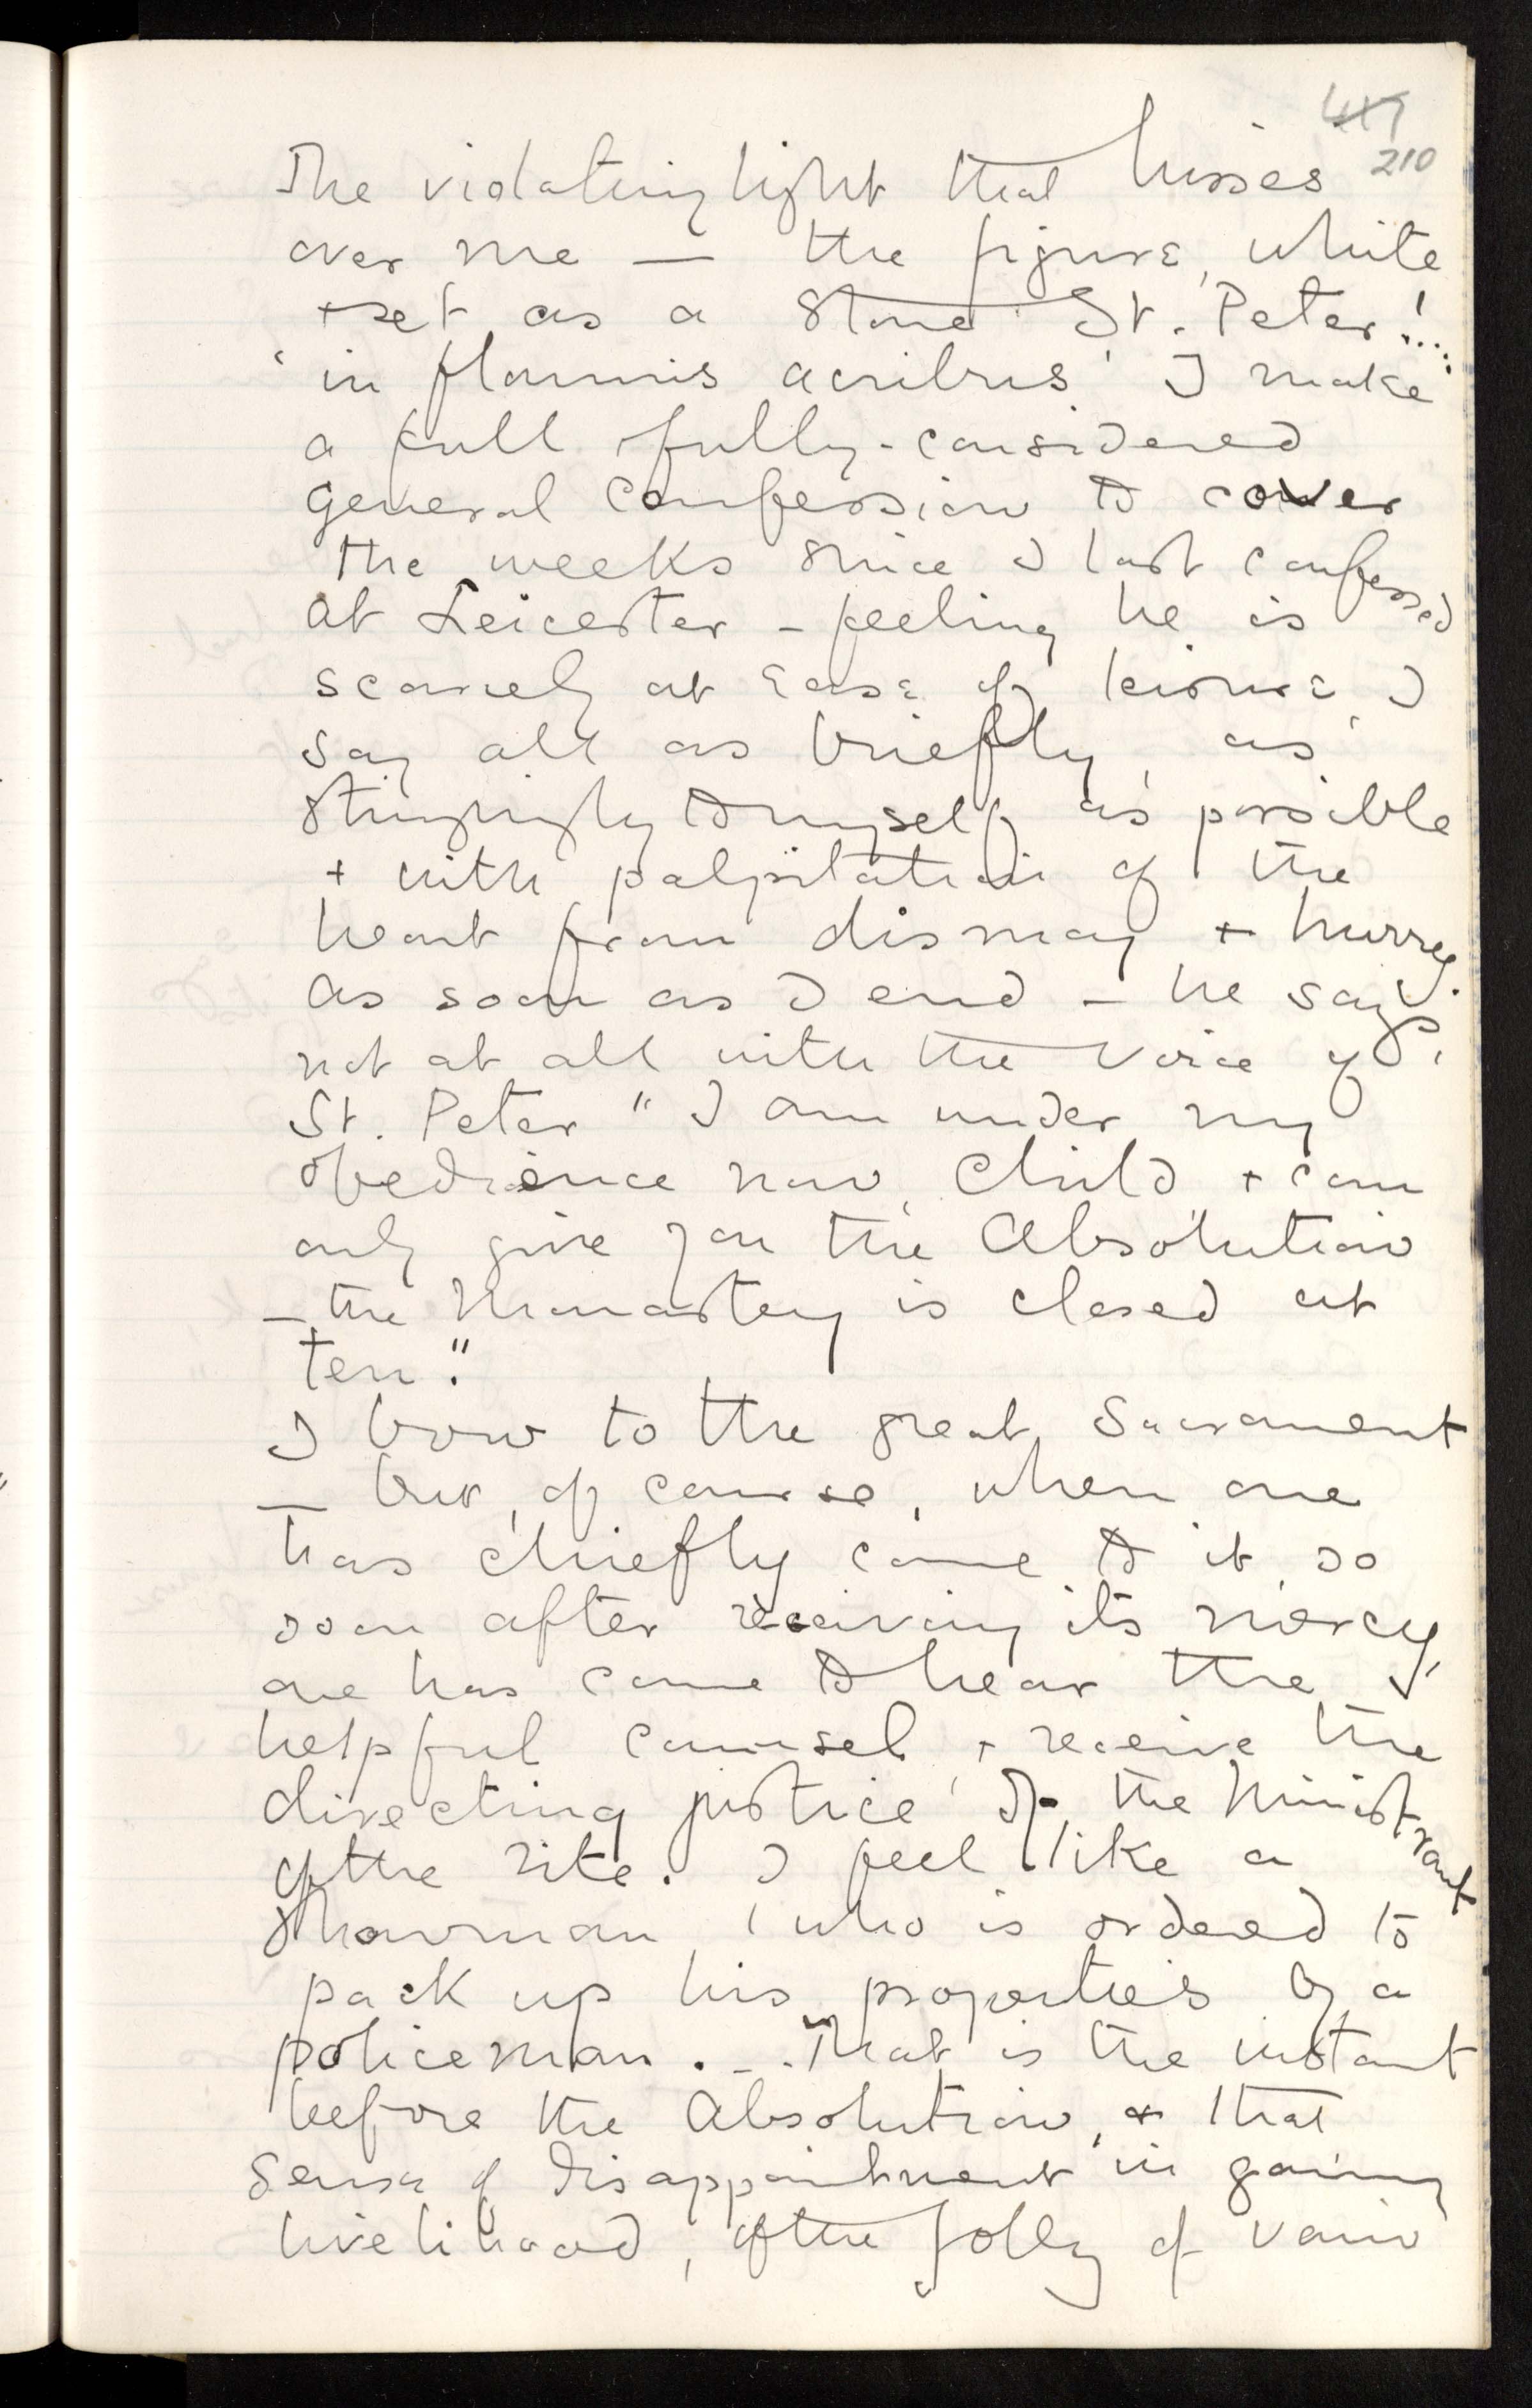 417
210
The violating light that hisses
over me — the figure, white
+ set as a stone St. Peter!...
'in flammis acribus' I make
a full fully-considered
general Confession to cover
the weeks since I last confessed
at Leicester – feeling he is
scarcely at ease of leisure, I
say all as briefly, as
stingingly to myself as possible
+ with palpitation of the
heart from dismay + hurry.
As soon as I end – he says,
not at all with the voice of
St. Peter "I am under my
obedience now, Child + can
only give you the Absolution
– the Monastery is closed at
ten."
I bow to the great Sacrament
— but, of course, when one
has chiefly come to it, so
soon after receiving its mercy,
one has come to hear the
helpful counsel, + receive the
directing justice of the Ministrant
of the rite. I feel like a
showman, who is ordered to
pack up his properties by a
policeman... That is the instant
before the Absolution, + that
sense of disappointment in gaining
livelihood, of the folly of vain